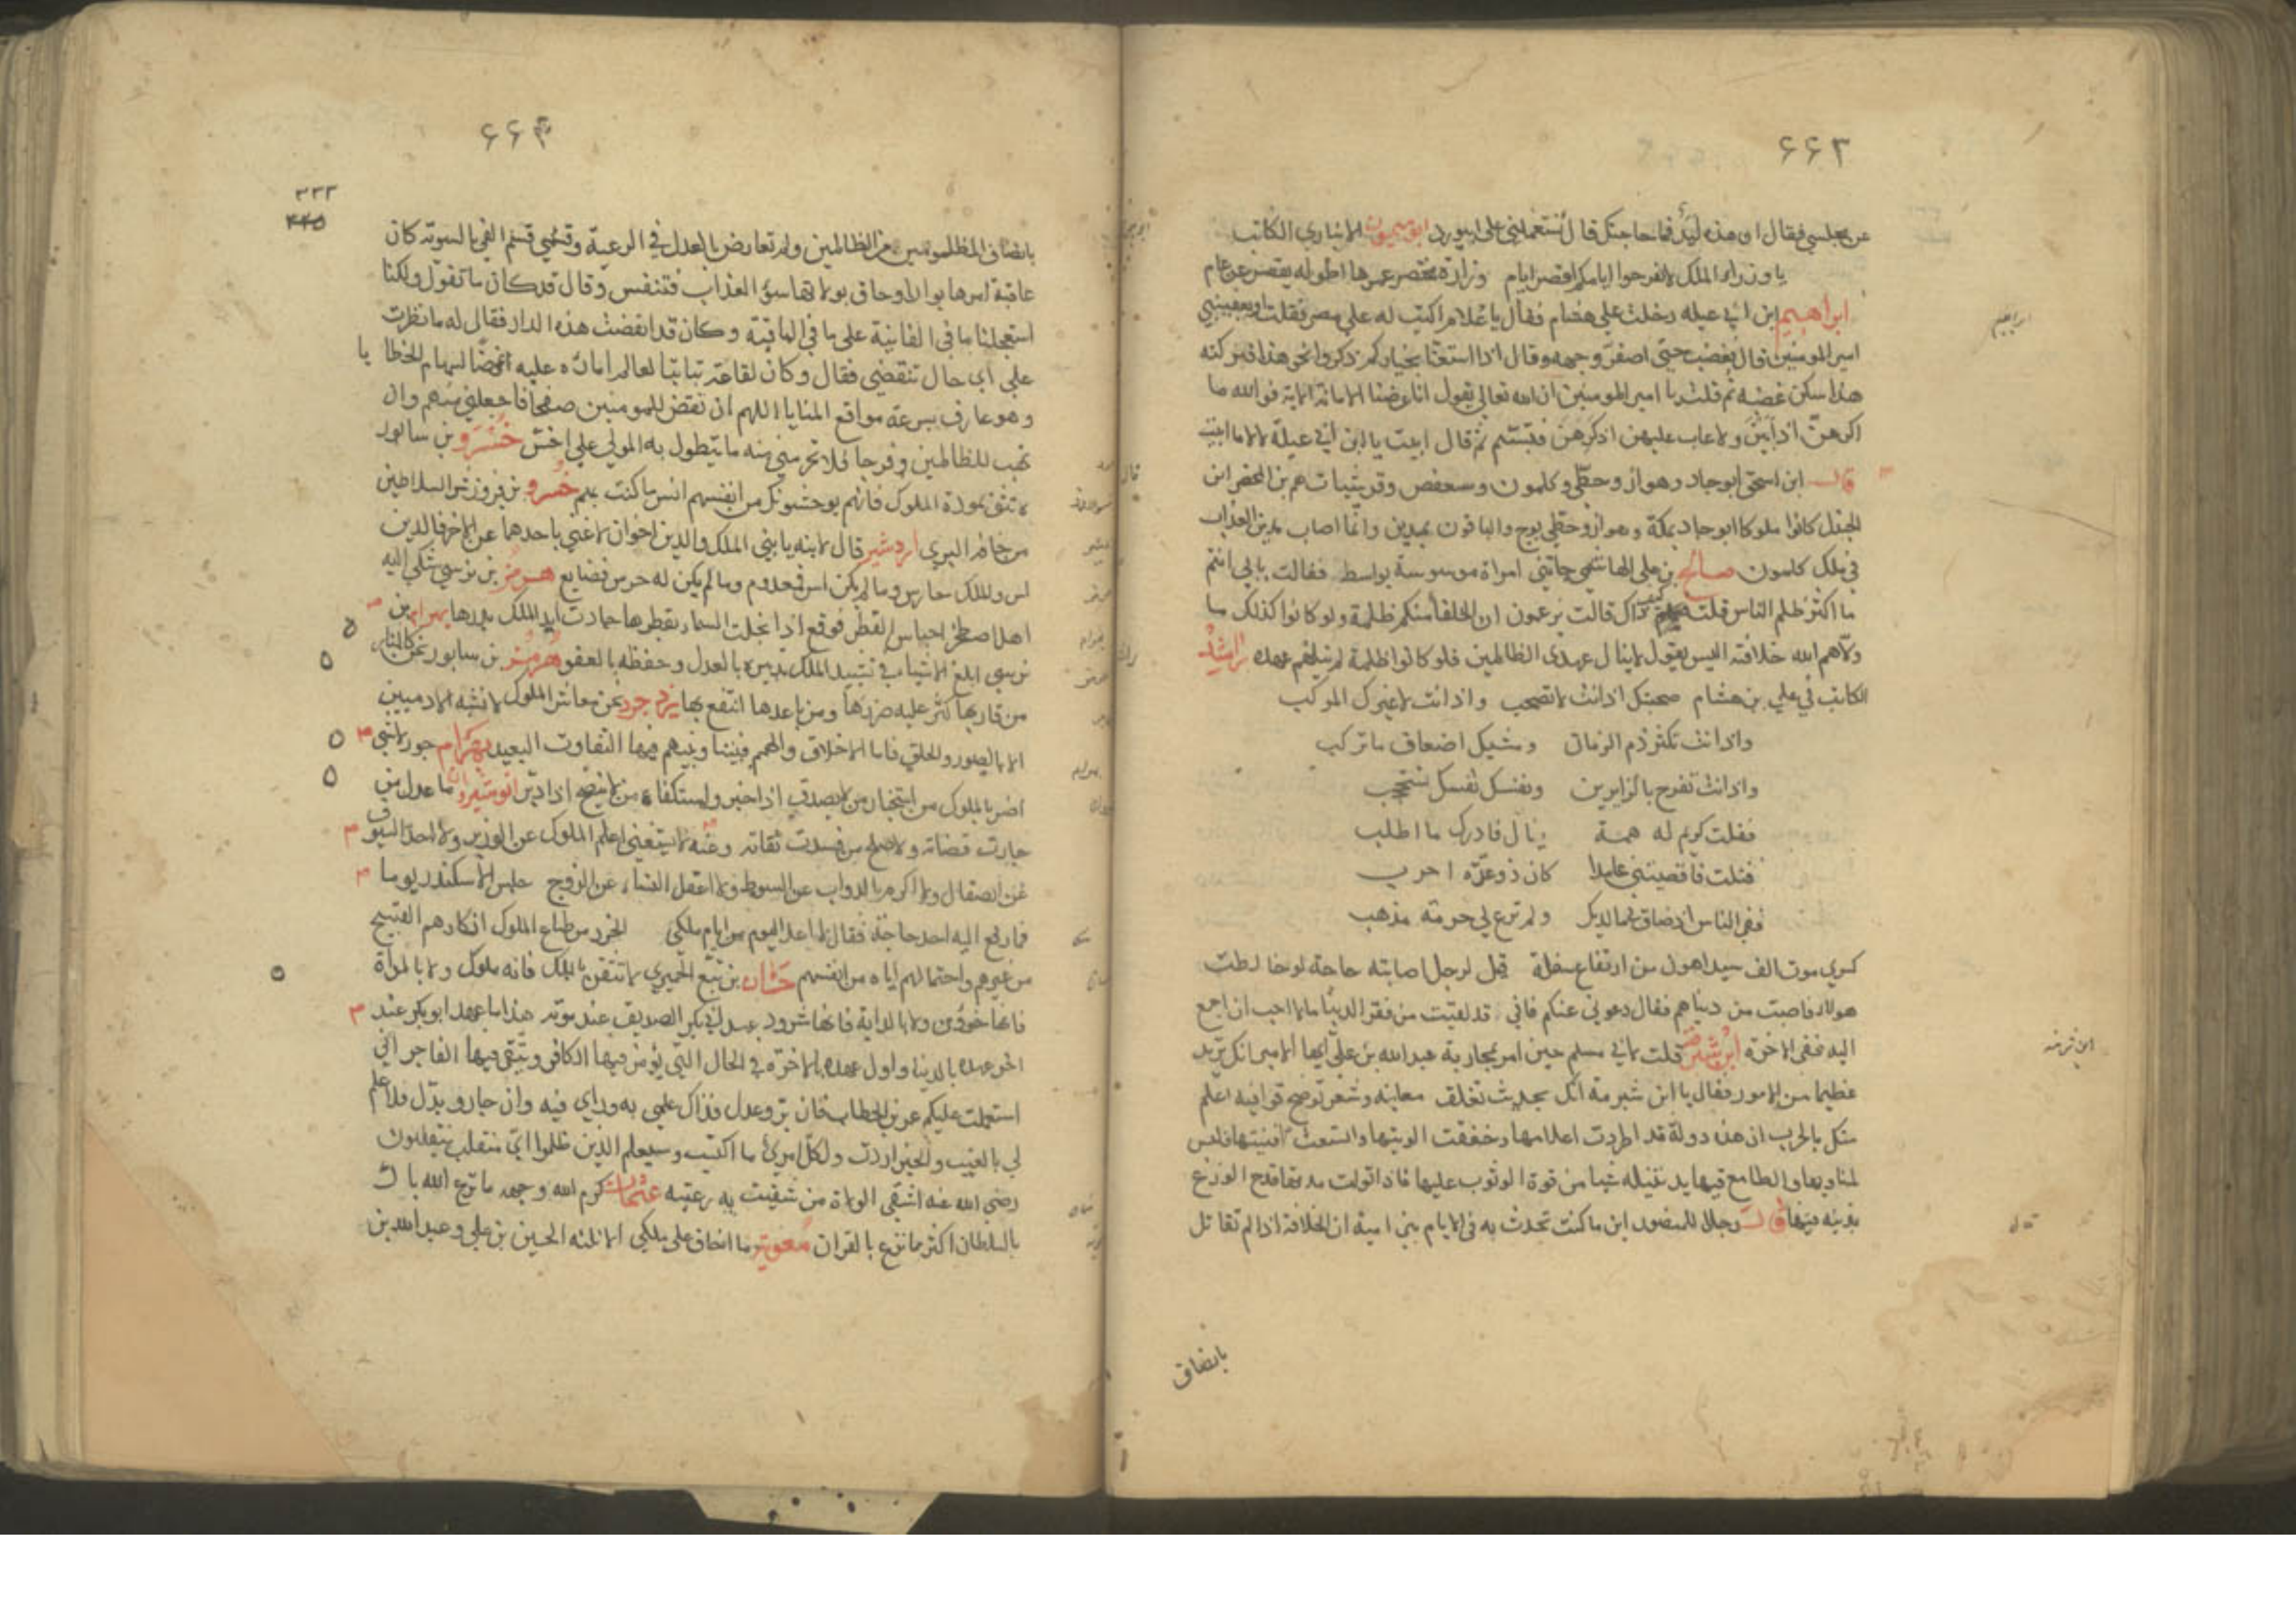 ۶۶۳
عن مجلسي فقال او هذه ليد فما حاجتك قال تستعملني على ابيورد ابو ميمون الانباري الكاتب
يا وزراء الملك لا تفرحوا ايامكم اقصر ايام وزارة مختصر عمرها اطوله يقصر عن عام
ابراهيم ابن ابي عبلة دخلت على هشام فقال يا غلام اكتب له على مصر فقلت او يعفيني
امير المومنين قال فغضب حتى اصفر وجهه وقال اذا استعنا بخياركم
هذا سكن غضبه ثم قلت يا امير المومنين ان الله تعالى يقول انا عرضنا الامانة الاية فوالله ما
اكرههن اذ ابين ولا عاب عليهن اذ كرهن فتبسم ثم قال ابيت يا ابن ابي عبلة الا ما ابيت
قال ابن اسحق ابو جاد وهواز وحطي وكلمون وسعفص وقريشيات هم بن المحضر ابن
الجندل كانوا ملوكا ابو جاد بمكة وهواز وحطي بوج والباقون بمدين وانما اصاب مدين العذاب
في ملك كلمون صالح بن علي الهاشمي جاتني امراة موسوسة بواسط فقالت بابي انتم
ما اكثر ظلم الناس قلت كيف ذاك قالت يزعمون ان الخلفا منكم ظلمة ولو كانوا كذلك ما
ولاهم الله خلافته اليس يقول لا ينال عهدي الظالمين فلو كانوا ظلمة لم ينلهم عهده راشد
الكاتب في علي بن هشام صحبتك اذ انت لا تصحب واذ انت لا غيرك الموكب
واذ انت تكثر ذم الزمان ومشيك اضعاف ما تركب
واذ انت تفرح بالزايرين ونفسك نفسك تستحجب
فقلت كريم له همة ينال فادرك ما اطلب
فنلت فاقصيتني عامدا كان ذو عرة اجرب
ففي الناس اذ ضاق بي مالديك ولم ترع لي حرمة مذهب
كسرى موت الف سيد اهون من ارتفاع سفلة قيل لرجل اصابته حاجة لو خالطت
هولاء فاصبت من دنياهم فقال دعوني عنكم فاني قد لقيت من فقر الدنيا ما لا احب ان اجمع
اليه فقر الاخرة ابن شبرمة قلت لابي مسلم حين امر بمحاربة عبد الله بن علي ايها الامير انك تريد
عظيما من الامور فقال يا ابن شبرمة انك بحديث تغلق معانيه وشعر توضح قوافيه اعلم
منك بالحرب ان هذه دولة قد اطردت اعلامها وخفقت الويتها واتسعت افنيتها فليس
لمناويها والطامع فيها يد تنيله شيا من قوة الوثوب عليها فاذا تولت مدتها قدح الوزغ
بذنبه فيها قال رجل للمنصور اين ما كنت تحدث به في الايام بني امية ان الخلافة اذا لم تقابل
ابراهيم
قال
بانصاف
۶۶۴
۳۳۲
بانصاف المظلومين من الظالمين ولم تعارض بالعدل في الرعية وقسم الفي بالسوية كان
عاقبة امرها بوارا وحاق بولاتها سوء العذاب فتنفس وقال قد كان ما تقول ولكنا
استعجلنا ما في الفانية على ما في الباقية وكان قد انقضت هذه الدار فقال له ما نظرت
على اي حال تنقضي فقال
وهو عارف بسرعة مواقع المنايا اللهم ان تقض للمومنين صفحا فاجعلني منهم وان
تهب للظالمين فرجا فلا تحرمني منه ما يتطول به المولى على اخس خسرو بن سابور
لا تثق بمودة الملوك فانهم يوحشونك من انفسهم انس ما كنت بهم خسرو بن فيروز شر السلاطين
من خافه البري اردشير قال لابنه يا بني الملك والدين اخوان لا غنى باحدهما عن الاخر فالدين
اس والملك حارس وما لم يكن اس فمهدوم وما لم يكن له حرس فضايع هرمز بن نرسي شكى اليه
اهل اصطخر احتباس القطر فوقع اذا بخلت السماء بقطرها جادت ايد الملك بدرها بهرام بن
نرسي ابلغ الاشياء في تثبيت الملك تدبيره بالعدل وحفظه بالعفو هرمز بن سابور نحن كالنار
من قاربها كثر عليه ضررها ومن باعدها انتفع بها يزد جرد نحن معاشر الملوك لا نشبه الادميين
الا بالصور والخلق فاما الاخلاق والهمم فبيننا وبينهم فيها التفاوت البعيد بهرام جور لا شي
اضر بالملوك من استخبار من لا يصدق اذا اخبر واستكفاء من لا ينصح اذا دبر انوشيروان ما عدل من
جارت قضاته ولا صلح من فسدت ثقاته وعنه لا يستغني اعلم الملوك عن الوزير ولا احد السيوف
عن الصقال ولا اكرم الدواب عن السوط ولا اعقل النساء عن الزوج جلس الاسكندر يوما
فما رفع اليه احد حاجة فقال لا اعد اليوم من ايام ملكي الخزر من طباع الملوك انكارهم القبيح
من غيرهم واحتمالهم اياه من انفسهم حسان بن تبع الحميري لا تثقن بالملك فانه ملوك ولا بالمراة
فانها خؤن ولا بالدابة فانها شرود عهد ابي بكر الصديق عند موته هذا ما عهد ابو بكر عند
اخر عهده بالدنيا واول عهده بالاخرة في الحال التي يؤمن فيها الكافر ويتقي فيها الفاجر اني
استعملت عليكم عمر بن الخطاب فان بر وعدل فذاك علمي به وراي فيه وان جار وبدل فلا علم
لي بالغيب والخير اردت ولكل امرئ ما اكتسب وسيعلم الذين ظلموا اي منقلب ينقلبون
رضي الله عنه اشقى الولاة من شقيت به رعيته عثمان كرم الله وجهه ما يزع الله با
بالسلطان اكثر مما يزع بالقران معوية ما اخاف على ملكي الا ثلثه الحسين بن علي وعبد الله بن